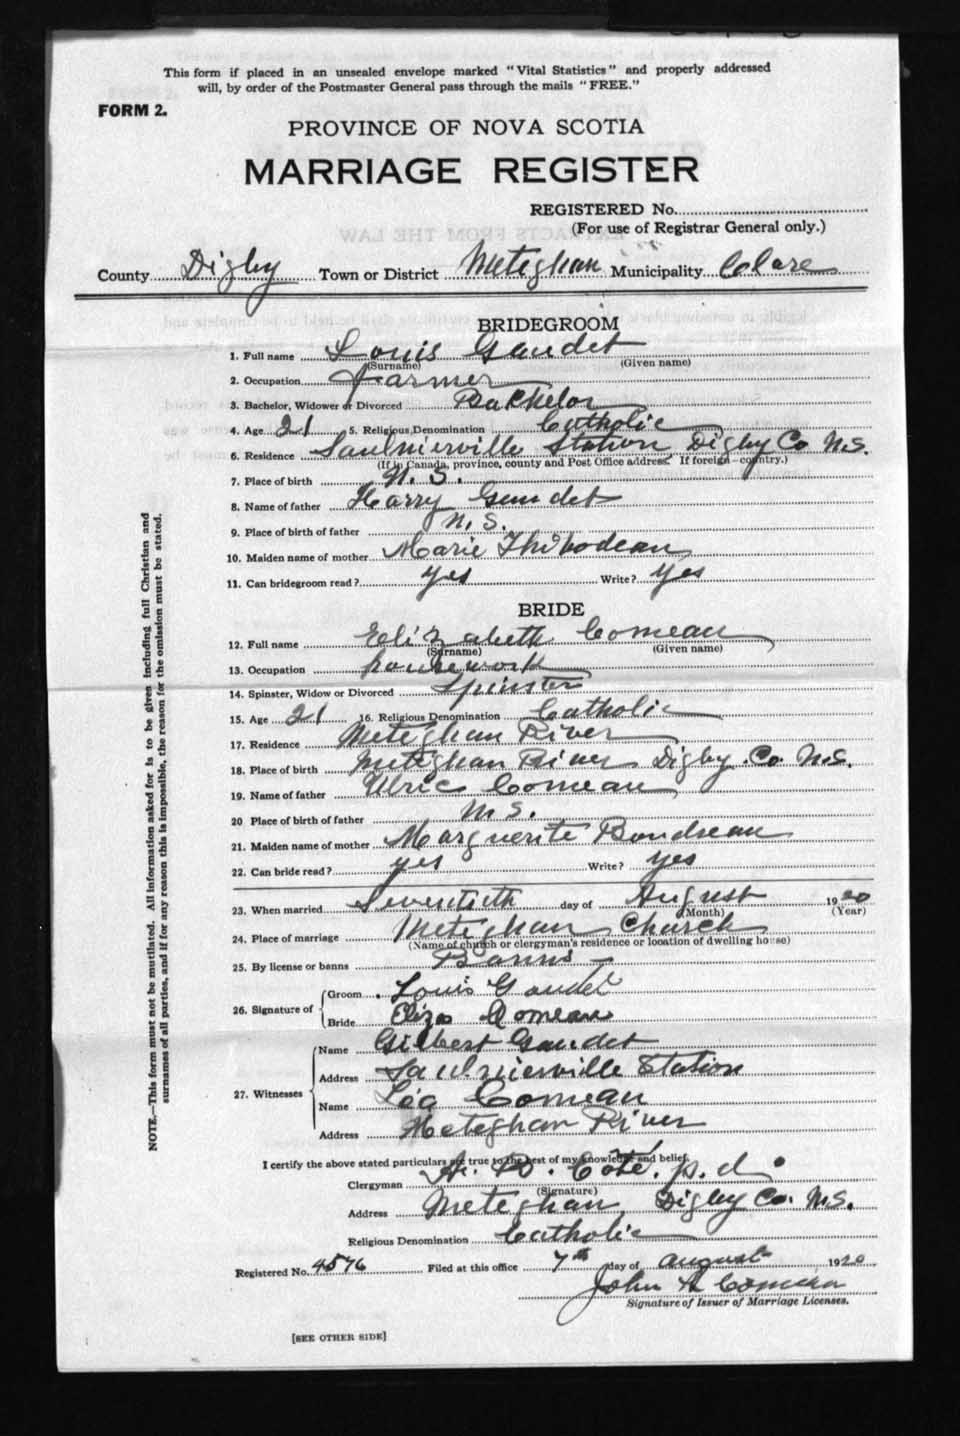 This form if placed in an unsealed envelope marked "Vital Statistics" and properly addressed
will, by order of the Postmaster General pass through the mails "FREE."
FORM 2.
PROVINCE OF NOVA SCOTIA
MARRIAGE REGISTER
REGISTERED No.
(For use of Registrar General only.)
County Digby Town or District Meteghan Municipality Clare
BRIDEGROOM
1. Full name Louis Gaudet
(Surname) (Given name)
2. Occupation Farmer
3. Bachelor, Widower or Divorced Bachelor
4. Age 21 5. Religious Denomination Catholic
6. Residence Saulnierville Station Digby Co N.S.
(If in Canada, province, county and Post Office address. If foreign—country.)
7. Place of birth N. S.
8. Name of father Harry Gaudet
9. Place of birth of father N. S.
10. Maiden name of mother Marie Thibodeau
11. Can bridegroom read? yes Write? yes
BRIDE
12. Full name Elizabeth Comeau
(Surname) (Given name)
13. Occupation housework
14. Spinster, Widow or Divorced Spinster
15. Age 21 16. Religious Denomination Catholic
17. Residence Meteghan River
18. Place of birth Meteghan River Digby Co. N.S.
19. Name of father Ulric Comeau
20 Place of birth of father N S.
21. Maiden name of mother Marguerite Boudreau
22. Can bride read? yes Write? yes
23. When married day of August 1920
(Month) (Year)
24. Place of marriage Meteghan Church
(Name of church or clergyman's residence or location of dwelling house)
25. By license or banns Banns
26. Signature of Groom Louis Gaudet
Bride Eliza Comeau
27. Witnesses Name Gilbert Gaudet
Address Saulnierville Station
Name Léa Comeau
Address Meteghan River
I certify the above stated particulars are true to the best of my knowledge and belief.
Clergyman A. B. Côté. p. d.
(Signature)
Address Meteghan Digby Co. N.S.
Religious Denomination Catholic
Registered No. 4576 Filed at this office 7th day of august 1920
John A Comeau
Signature of Issuer of Marriage Licenses.
[SEE OTHER SIDE]
NOTE.—This form must not be mutilated. All information asked for is to be given including full Christian and
surnames of all parties, and if for any reason this is impossible, the reason for the omission must be stated.